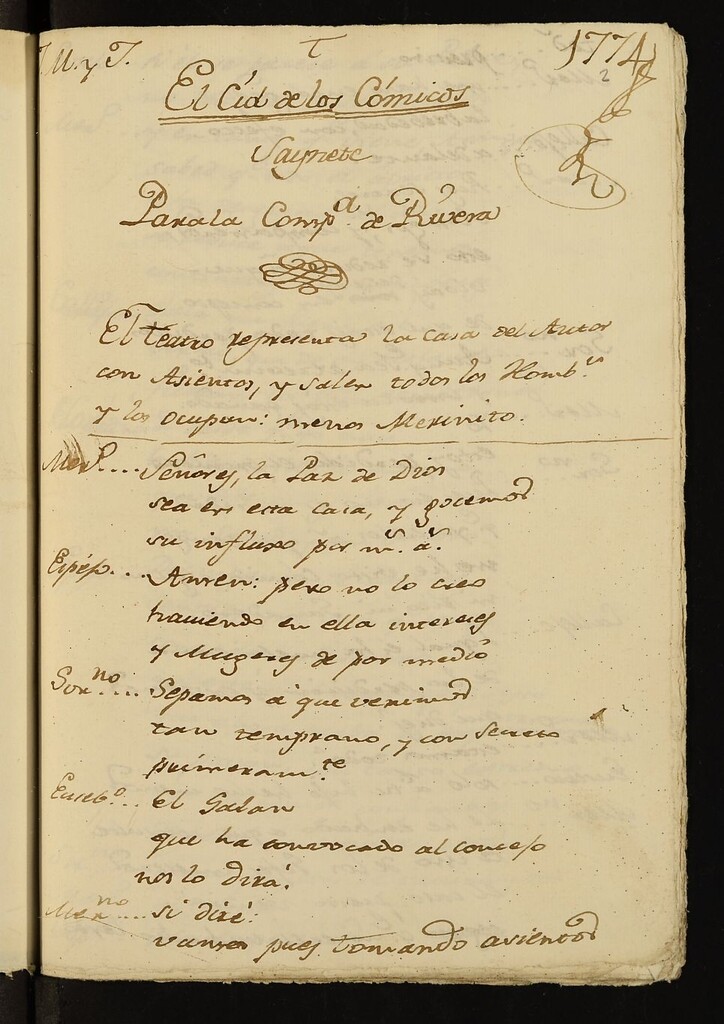 M. y J.
T
1774
2
El Cid de los Cómicos
Saynete
Para la Comp.a de Rivera
El Teatro representa la casa del Autor
con Asientos, y salen todos los Homb.s
y los ocupan: menos Merinito.
Señores, la Paz de Dios
sea en esta casa, y gocemos
su influxo por m.s a.s
Espêjo...
Amen: pero no lo creo
haviendo en ella intereses
y Mugeres de por medio
Sor.no...
Sepamos à que venimos
tan temprano, y con secreto
primeram.te
Euseb.o..
El Galan
que ha convocado al concejo
nos lo dirá.
Mer.no...
si diré:
vamos pues tomando asientos